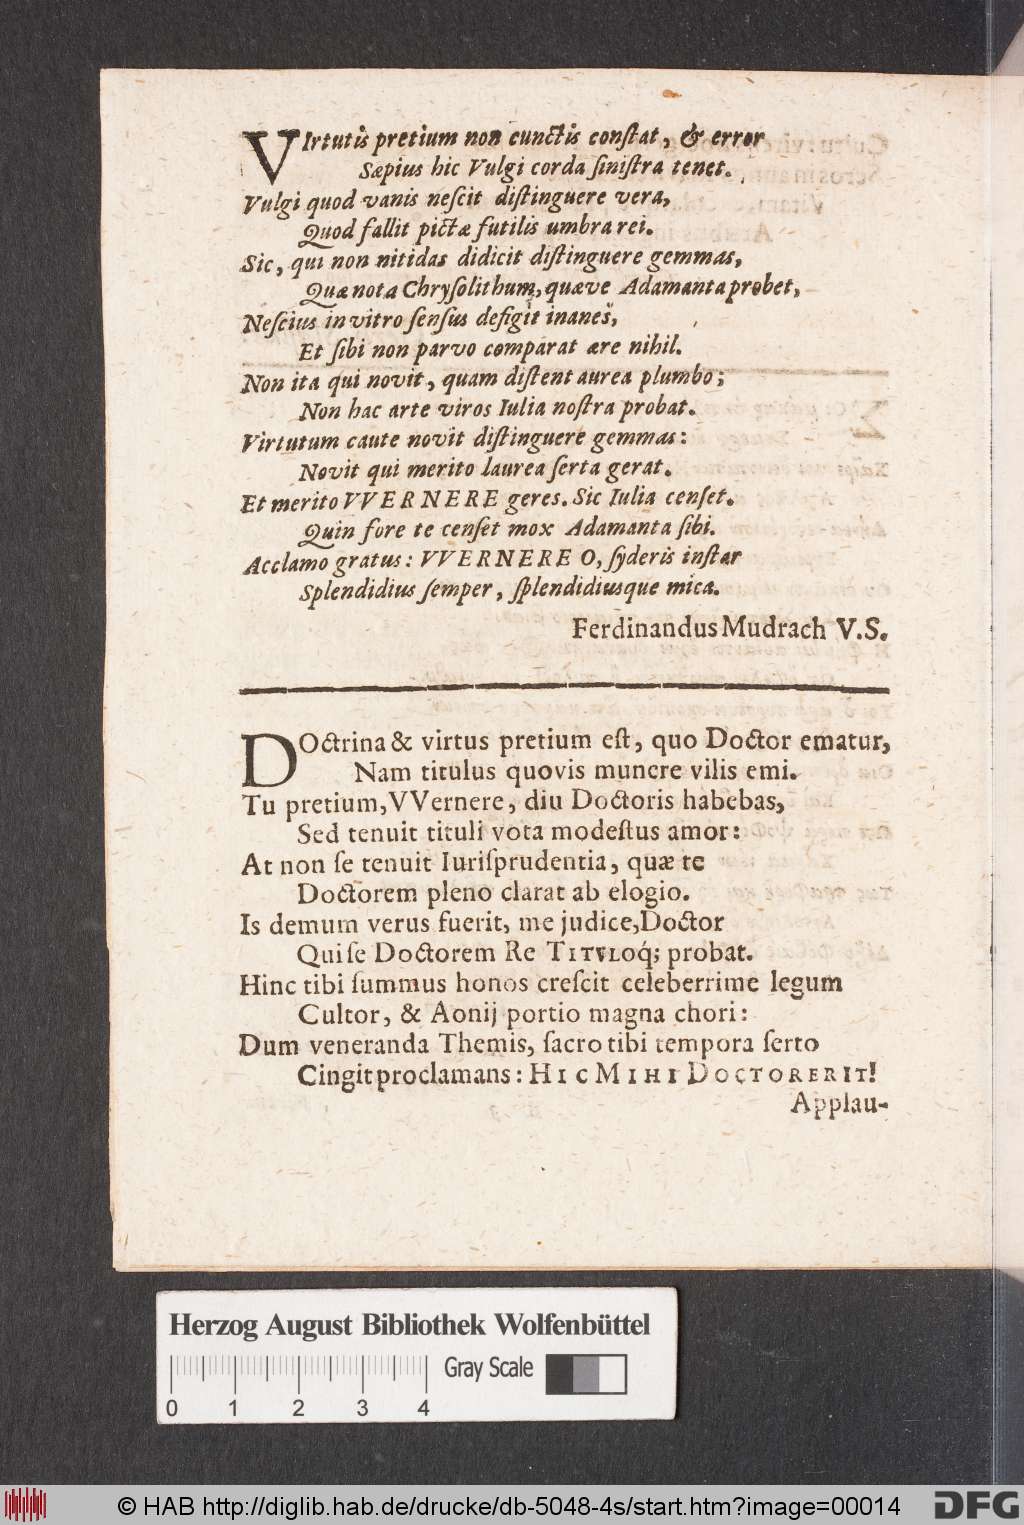 VIrtutis pretium non cunctis conſtat, & error
Sæpius hic Vulgi corda ſiniſtra tenet.
Vulgi quod vanis neſcit diſtinguere vera,
Quod fallit pictæ futilis umbra rei.
Sic, qui non nitidas didicit diſtinguere gemmas,
Quæ nota Chryſolithum, quæve Adamanta probet,
Neſcius in vitro ſenſus defigit inanes,
Et ſibi non parvo comparat ære nihil.
Non ita qui novit, quam diſtent aurea plumbo;
Non hac arte viros Iulia noſtra probat.
Virtutum caute novit diſtinguere gemmas:
Novit qui merito laurea ſerta gerat.
Et merito VVERNERE geres. Sic Iulia cenſet.
Quin fore te cenſet mox Adamanta ſibi.
Acclamo gratus: VVERNERE O, ſyderis inſtar
Splendidius ſemper, ſplendidiusque mica.
Ferdinandus Mudrach V.S.
DOctrina & virtus pretium eſt, quo Doctor ematur,
Nam titulus quovis munere vilis emi.
Tu pretium, VVernere, diu Doctoris habebas,
Sed tenuit tituli vota modeſtus amor:
At non ſe tenuit Iuriſprudentia, quæ te
Doctorem pleno clarat ab elogio.
Is demum verus fuerit, me judice, Doctor
Qui ſe Doctorem Re TITVLOq́; probat.
Hinc tibi ſummus honos creſcit celeberrime legum
Cultor, & Aonij portio magna chori:
Dum veneranda Themis, ſacro tibi tempora ſerto
Cingit proclamans: HIC MIHI DOCTOR ERIT!
Applau-
Herzog August Bibliothek Wolfenbüttel
Gray Scale
0 1 2 3 4
© HAB http://diglib.hab.de/drucke/db-5048-4s/start.htm?image=00014
DFG